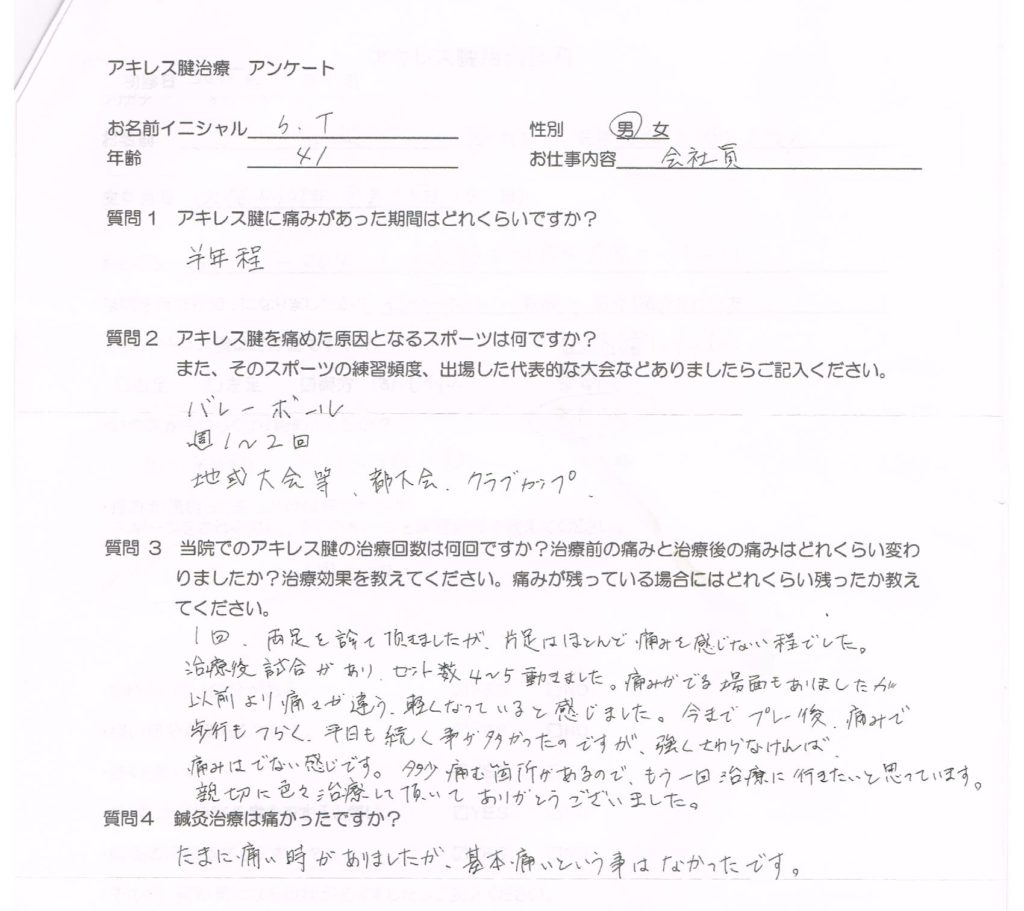 アキレス腱治療　アンケート
お名前イニシャル S.T　性別　男　女
年齢 41　お仕事内容 会社員
質問１　アキレス腱に痛みがあった期間はどれくらいですか？
半年程
質問２　アキレス腱を痛めた原因となるスポーツは何ですか？
また、そのスポーツの練習頻度、出場した代表的な大会などありましたらご記入ください。
バレーボール
週1〜2回
地域大会等、都大会、クラブカップ、
質問３　当院でのアキレス腱の治療回数は何回ですか？治療前の痛みと治療後の痛みはどれくらい変わ
りましたか？治療効果を教えてください。痛みが残っている場合にはどれくらい残ったか教え
てください。
1回、両足を診て頂きましたが、片足はほとんど痛みを感じない程でした。
治療後試合があり、セット数4〜5動きました。痛みがでる場面もありましたが
以前より痛さが違う、軽くなっていると感じました。今までプレー後、痛みで
歩行もつらく、平日も続く事が多かったのですが、強くさわらなければ
痛みはでない感じです。多少痛む箇所があるので、もう一回治療に行きたいと思っています。
親切に色々治療して頂いてありがとうございました。
質問４　鍼灸治療は痛かったですか？
たまに痛い時がありましたが、基本痛いという事はなかったです。